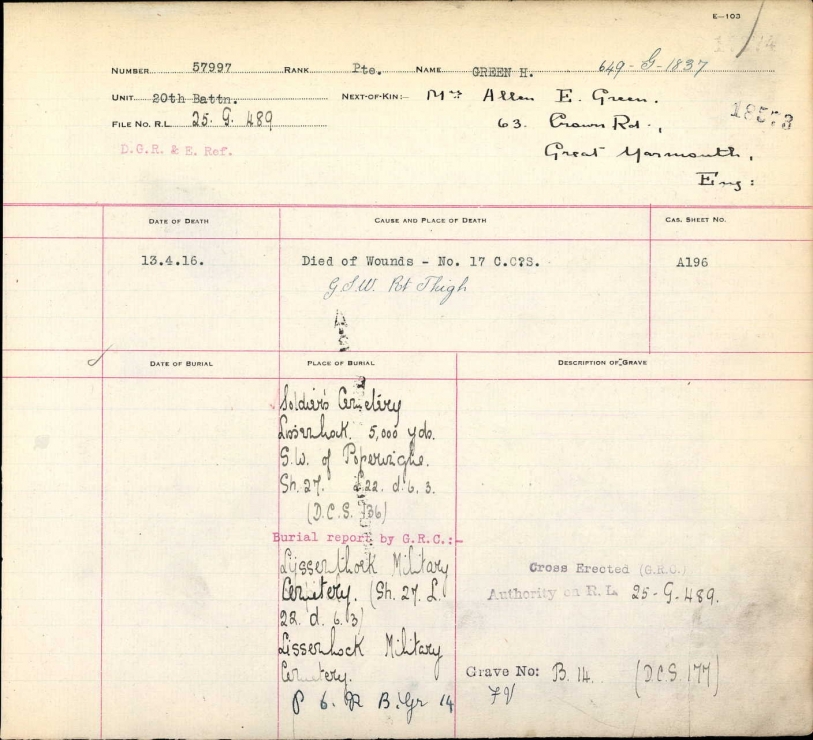 E—103
NUMBER 57997 RANK Pte. NAME GREEN H. 649-G-1837
UNIT 20th Battn. NEXT-OF-KIN:- Mrs Allen E. Green.
18573
FILE NO. R.L. 25. G. 489 63. Crown Rd.,
D.G.R. & E. Ref. Great Yarmouth,
Eng:
DATE OF DEATH CAUSE AND PLACE OF DEATH CAS. SHEET NO.
13.4.16. Died of Wounds - No. 17 C.C?S. A196
G.S.W. Rt Thigh
DATE OF BURIAL PLACE OF BURIAL DESCRIPTION OF GRAVE
Soldier's Cemetery
Lissenhock. 5,000 yds.
S.W. of Poperinghe.
Sh. 27. L.22. d. 6. 3.
(D.C.S. 736)
Burial report by G.R.C.:-
Lijssenthoek Military
Cemetery. (Sh. 27. L.
22. d. 6. 3)
Lissenhock Military
Cemetery.
P 6. R B. Gr 14
Cross Erected (G.R.C.)
Authority on R.L. 25-G-489.
Grave No: B. 14. (D.C.S. 177)